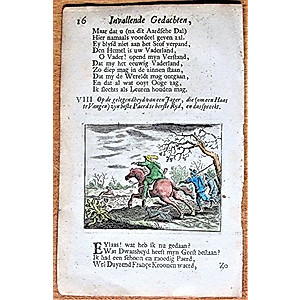 16 Invallende Gedachten,
Maar dat u (na dit Aardsche Dal)
Hier namaals voordeel geven zal.
Ey blyfd niet aan het Stof verpand,
Den Hemel is uw Vaderland,
O Vader! opend myn Verstand,
Dat my het eeuwig Vaderland,
Zo diep mag in de zinnen staan,
Dat my de Wereldt mag ontgaan,
En dat al wat ooyt Ooge zag,
Ik slechts als Leuren houden mag.
VIII Op de gelegendheyd van een Jager, die (om een Haas
te Vangen) zyn beste Paerd te berste Ryd, en dus spreekt.
EYlaas! wat heb ik nu gedaan?
Wat Dwaasheyd heeft myn Geest bestaan?
Ik had een schoon en moedig Paerd,
Wel Duyzend France Kroonen waerd,
Zo